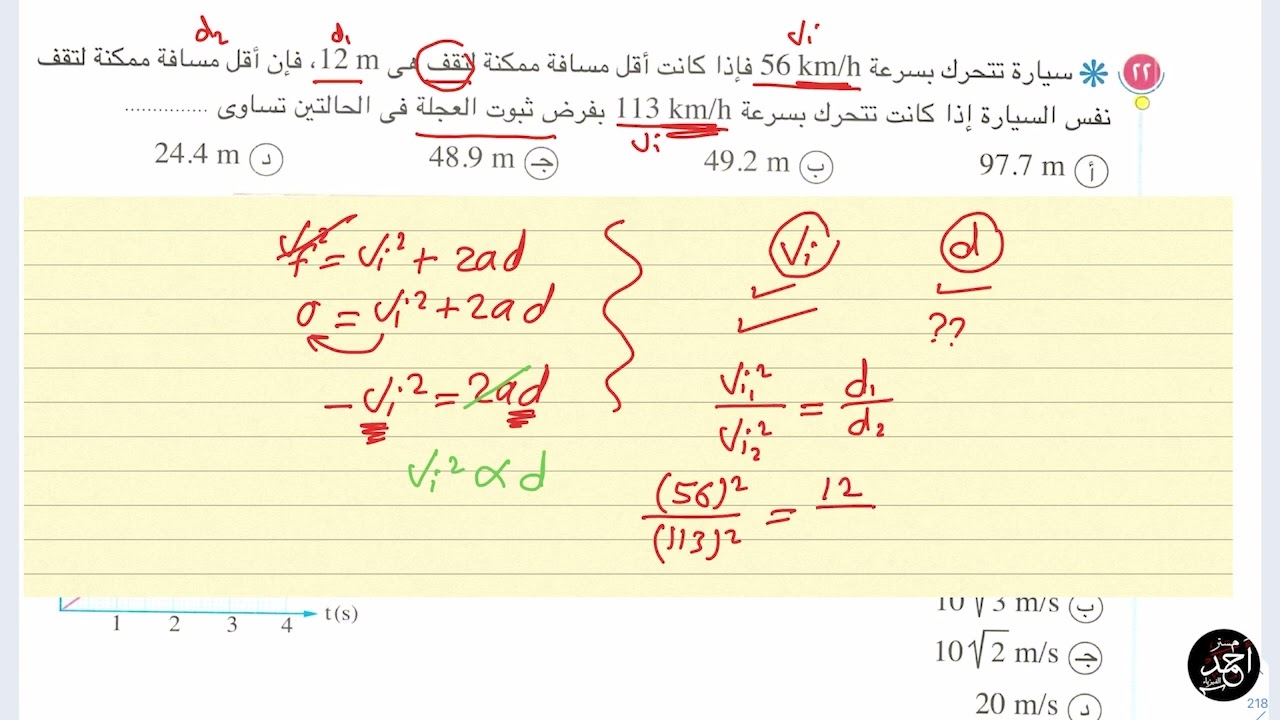 d₂ d₁ Vᵢ
٢٢ * سيارة تتحرك بسرعة 56 km/h فإذا كانت أقل مسافة ممكنة لتقف هى 12 m، فإن أقل مسافة ممكنة لتقف
نفس السيارة إذا كانت تتحرك بسرعة 113 km/h بفرض ثبوت العجلة فى الحالتين تساوى ...............
Vᵢ
أ 97.7 m ب 49.2 m جـ 48.9 m د 24.4 m
Vf² = Vᵢ² + 2ad
0 = Vᵢ² + 2ad
- Vᵢ² = 2ad
Vᵢ² ∝ d
Vᵢ d
✓ ✓
✓ ??
Vᵢ₁² / Vᵢ₂² = d₁ / d₂
(56)² / (113)² = 12
1 2 3 4 t(s)
ب 10√3 m/s
جـ 10√2 m/s
د 20 m/s
مستر
أحمد
218